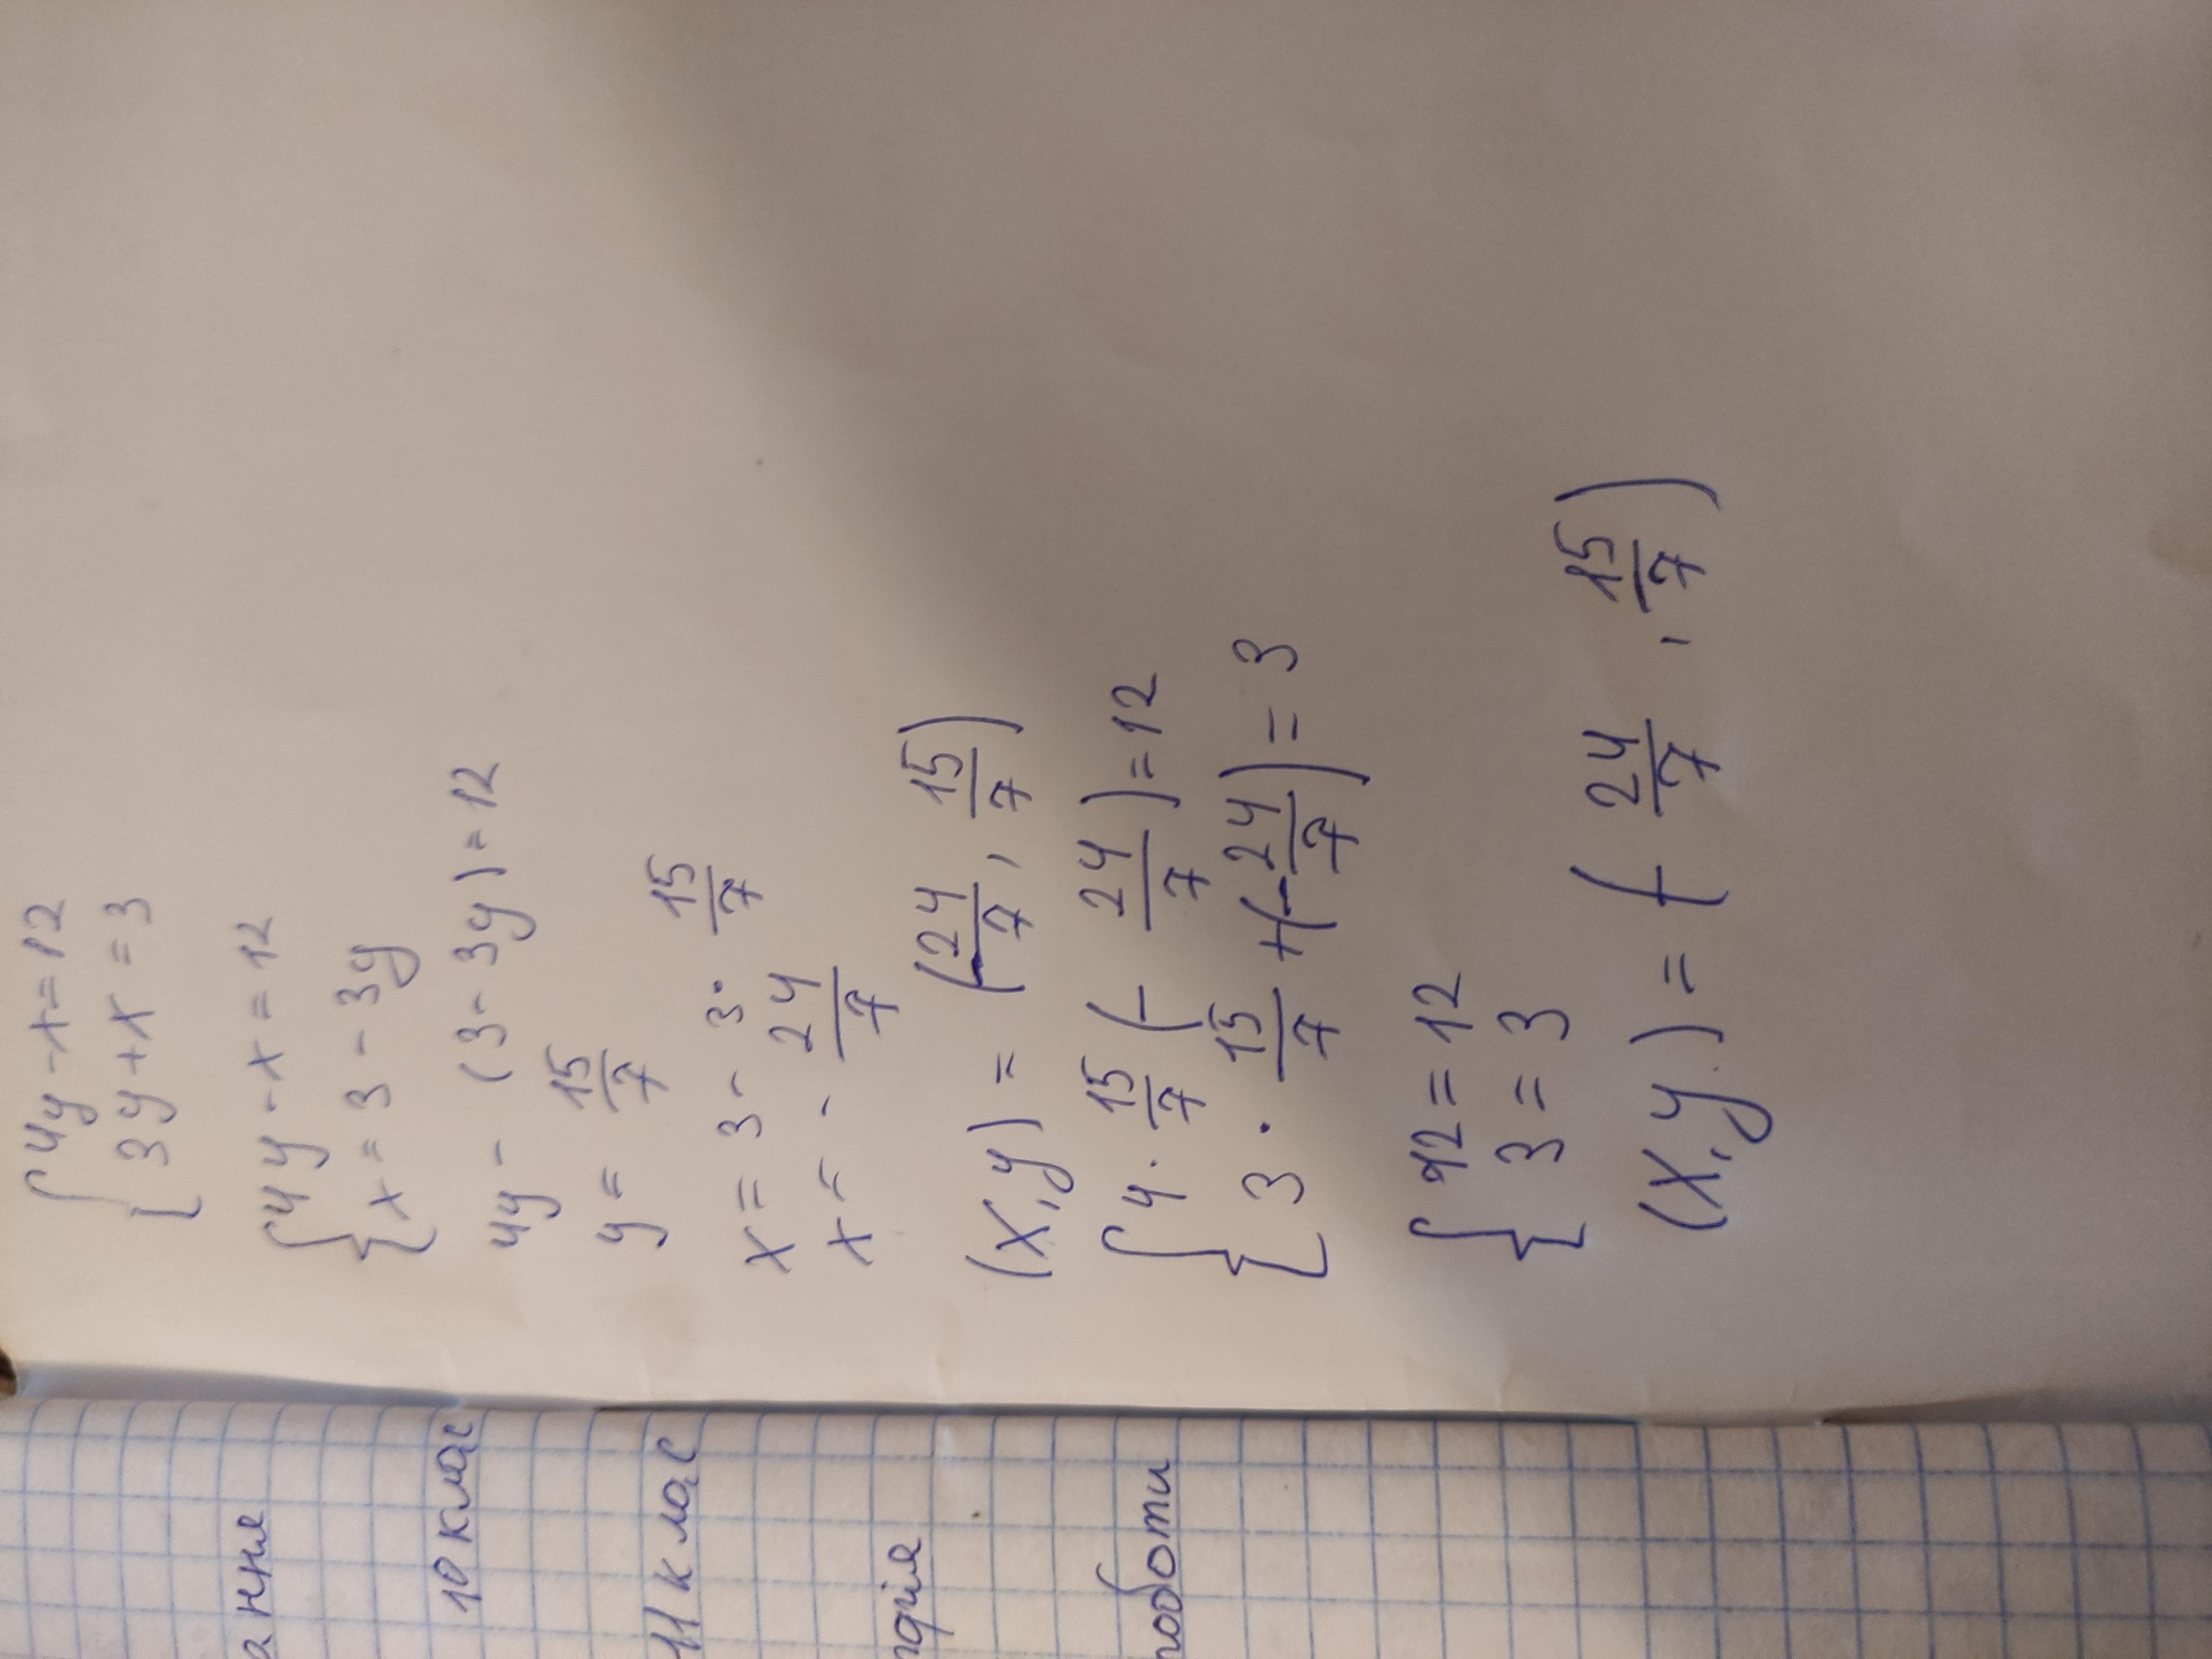 {4y - x = 12
3y + x = 3
{4y - x = 12
x = 3 - 3y
4y - (3 - 3y) = 12
y = 15/7
x = 3 - 3 · 15/7
x = - 24/7
(x, y) = (-24/7, 15/7)
{4 · 15/7 (- 24/7) = 12
3 · 15/7 + (-24/7) = 3
{12 = 12
3 = 3
(x, y) = (- 24/7, 15/7)
ання
10 клас
11 клас
роботи